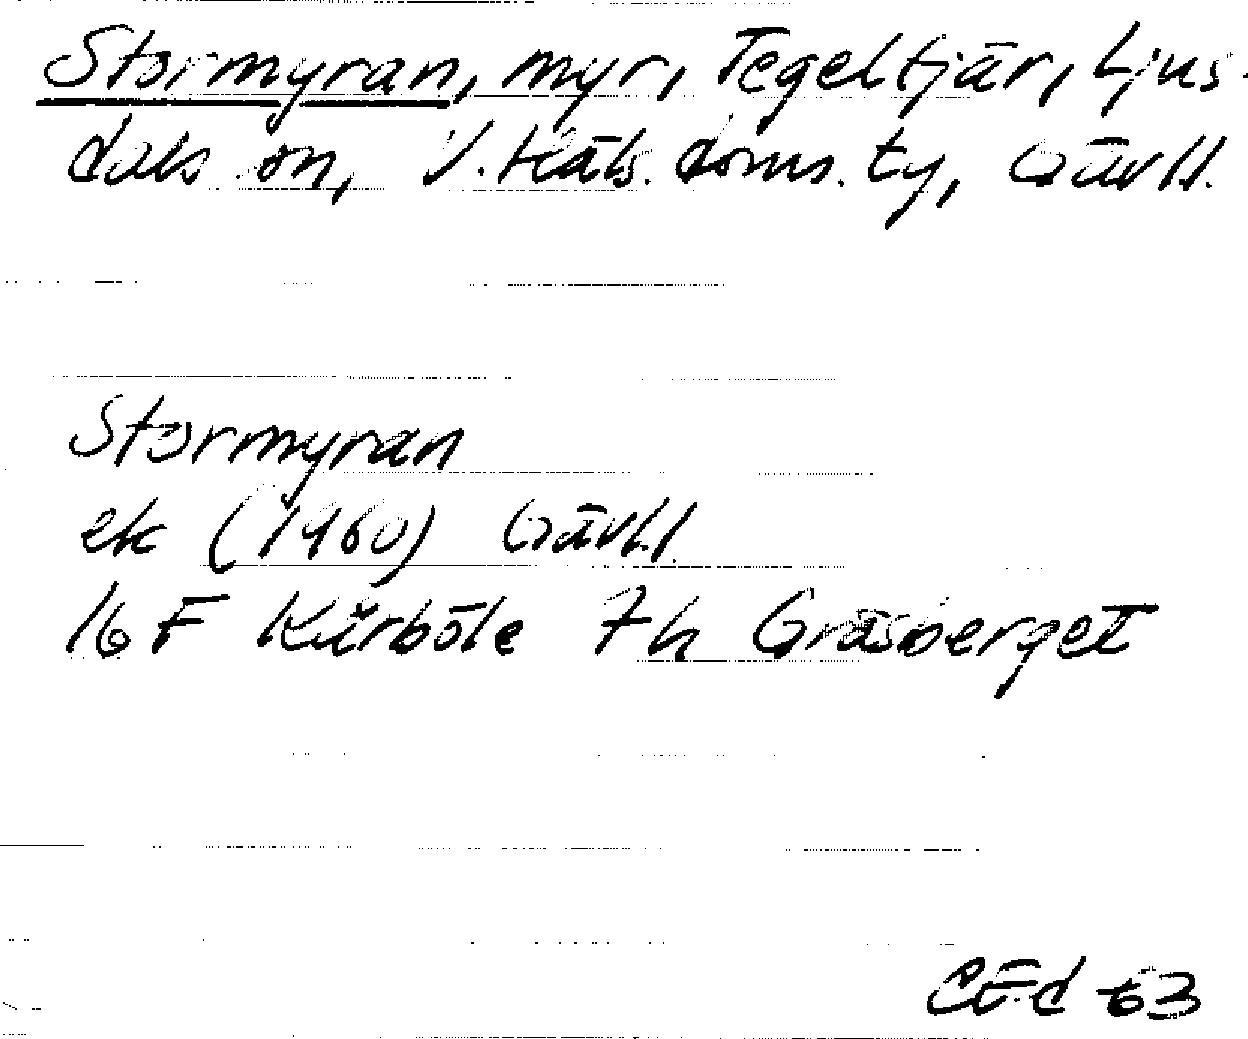 Stormyran, myr, Tegeltjär, Ljus-
dals sn, V. Häls. doms. ty, Gävl.l.
Stormyran
ek (1960) Gävl.l.
16 F Kårböle 7h Gräsberget
CEd 63